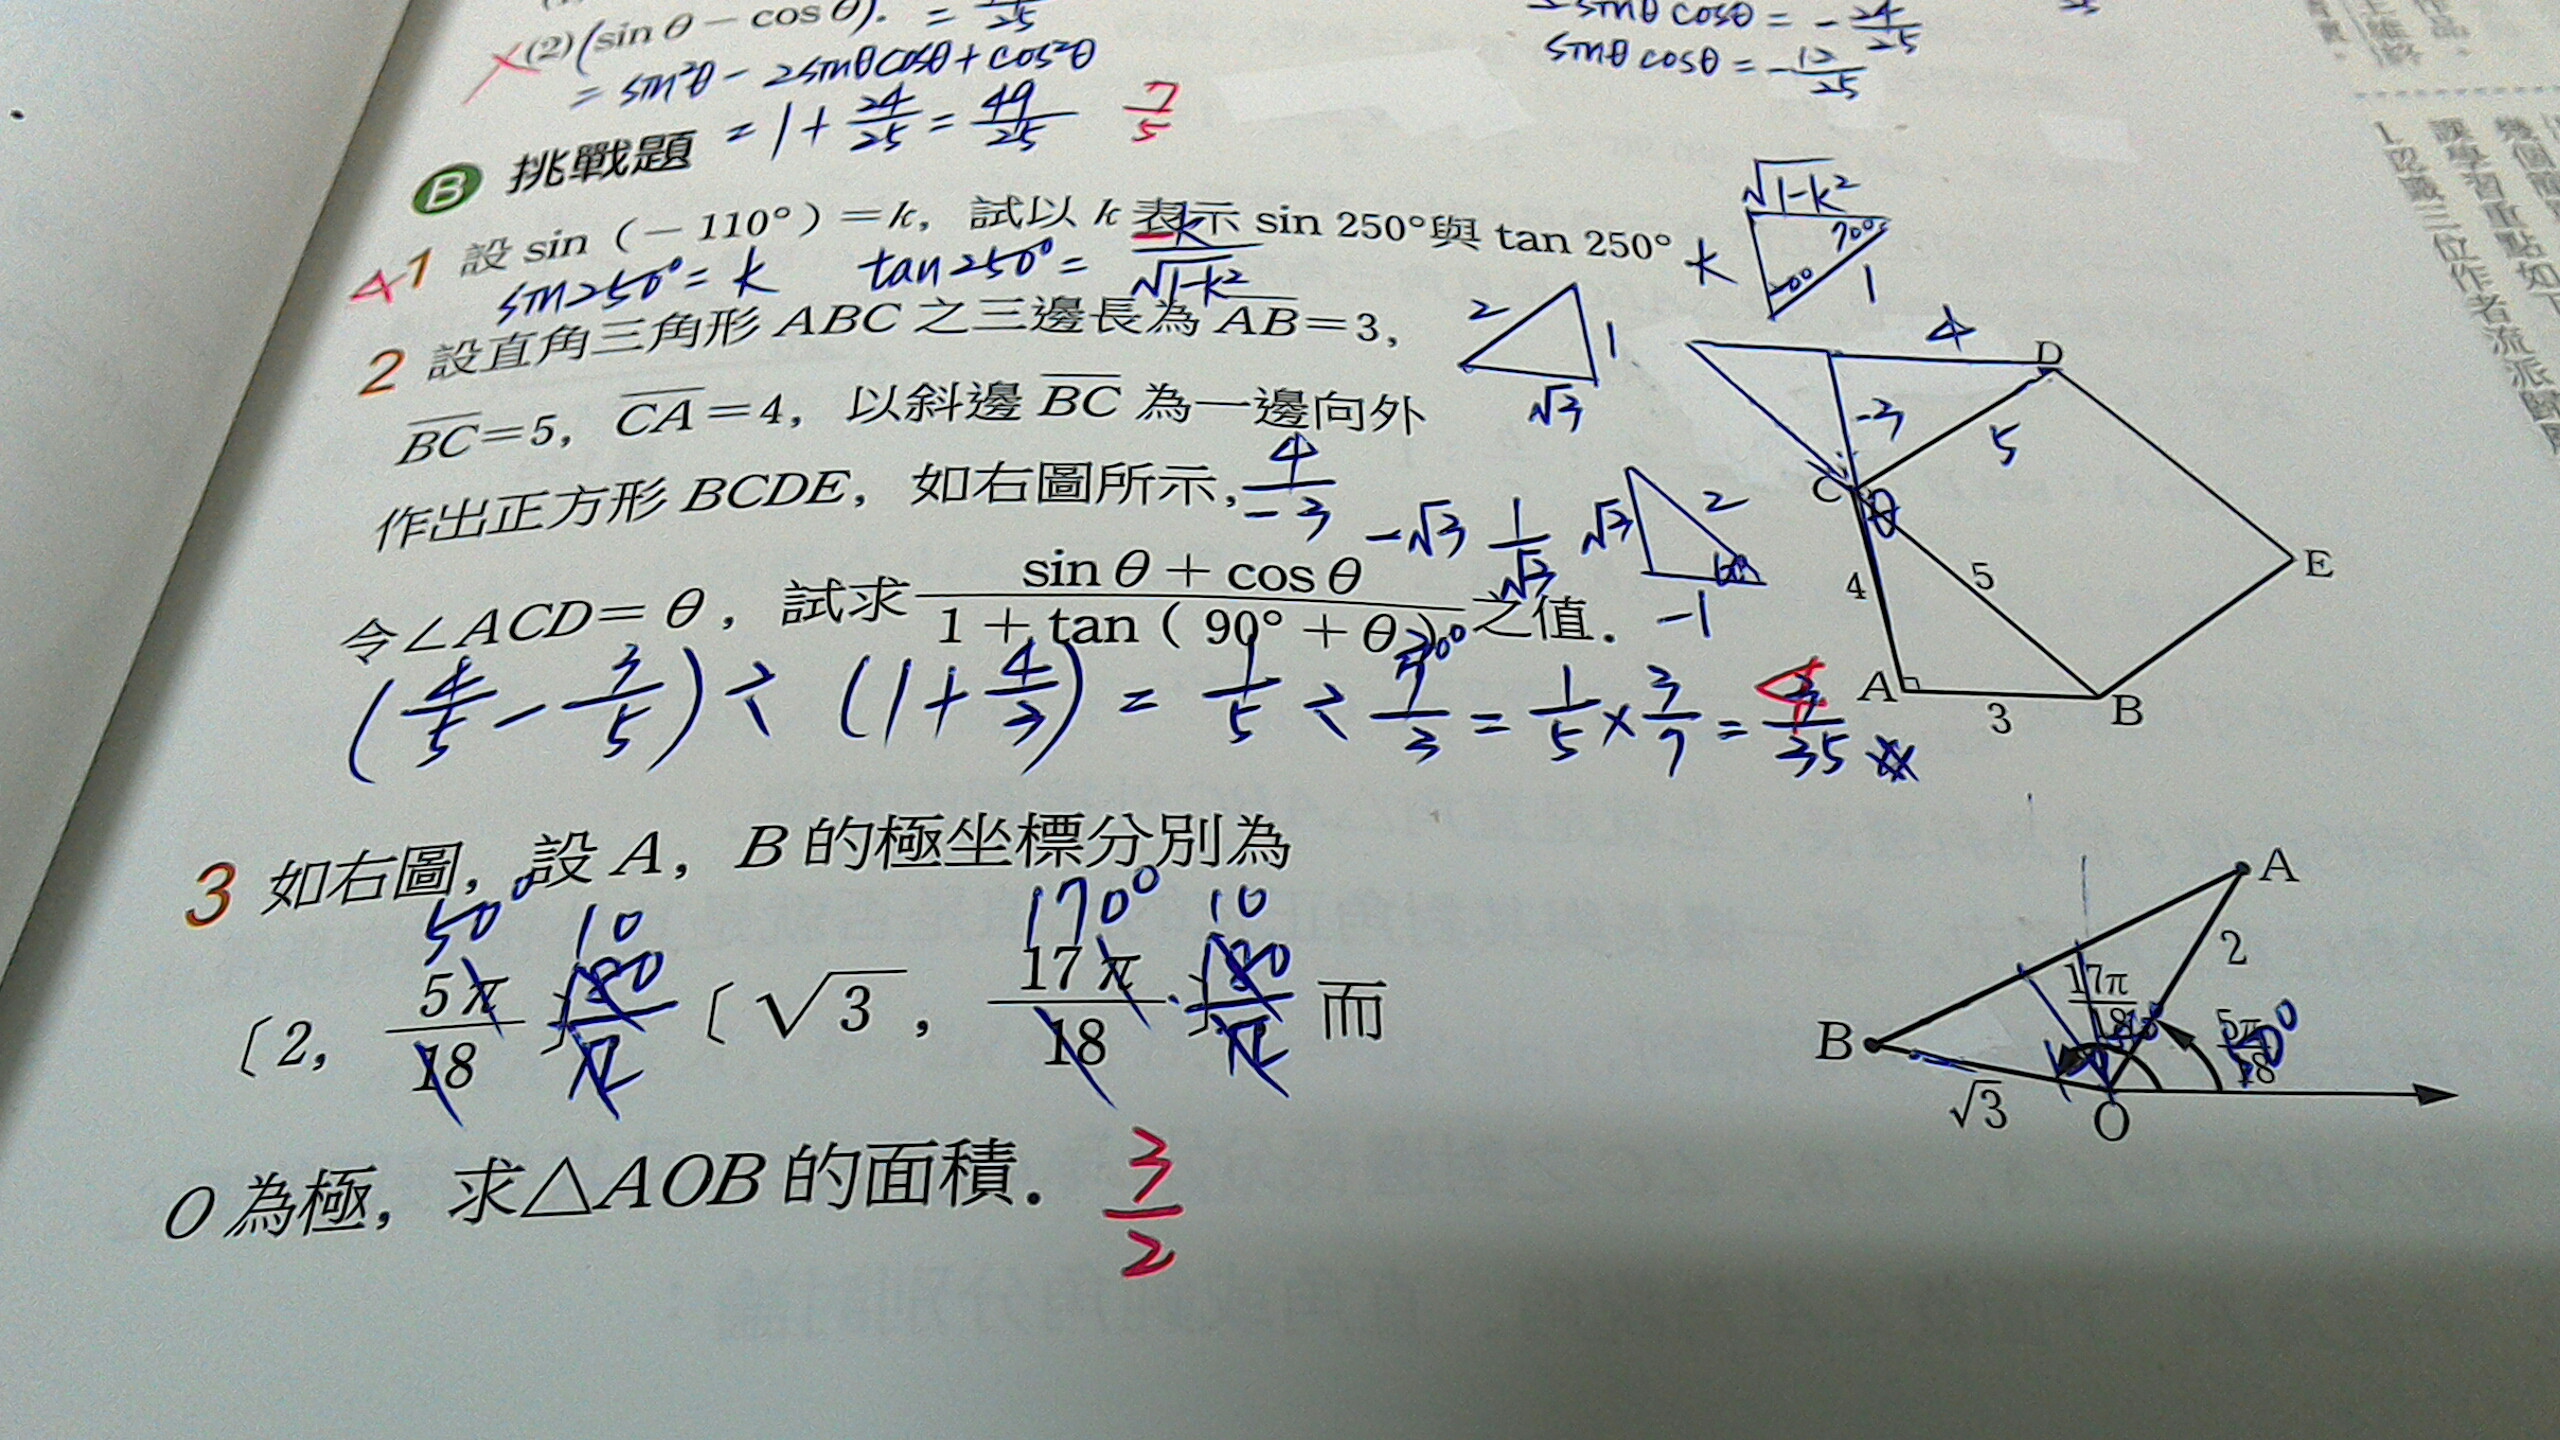 (2)(sinθ－cosθ). = /25
= sin²θ - 2sinθcosθ + cos²θ
= 1 + 24/25 = 49/25 7/5
sinθ cosθ = - 24/25
sinθ cosθ = - 12/25
B 挑戰題
1 設 sin（－110°）＝k，試以 k 表示 sin 250°與 tan 250°
sin250° = k tan250° = -k/√1-k²
√1-k² 70° 20° k 1
2 設直角三角形 ABC 之三邊長為 AB＝3，
BC＝5，CA＝4，以斜邊 BC 為一邊向外
作出正方形 BCDE，如右圖所示，
令∠ACD＝θ，試求 (sinθ＋cosθ)/(1＋tan（90°＋θ）) 之值．
4/-3 -√3 1/√3
2 1 √3
√3 2 60° -1
(4/5 - 3/5) ÷ (1 + 4/3) = 1/5 ÷ 7/3 = 1/5 × 3/7 = 3/35
4 D -3 5 C θ E 4 5 A 3 B
3 如右圖，設 A，B 的極坐標分別為
50° 10 170° 10
〔2，5π/18〕，〔√3，17π/18〕，而
180/π 180/π
O 為極，求△AOB 的面積．
3/2
A 2 17π/18 5π/18 50° B √3 O